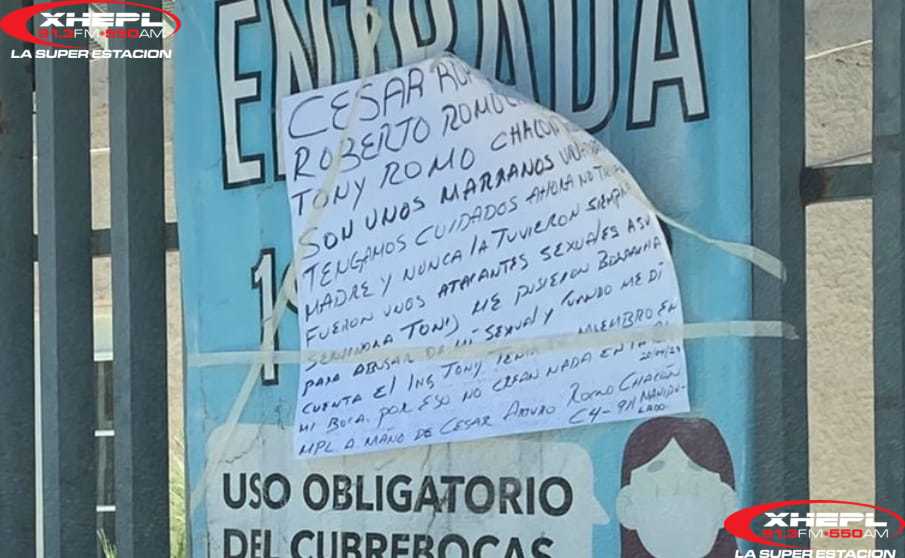 XHEPL
91.3FM·550AM
LA SUPER ESTACION
ENTRADA
CESAR
ROBERTO
TONY ROMO
SON UNOS MARRANOS
TENGAMOS CUIDADOS AHORA NO
MADRE Y NUNCA LA TUVIERON SIEMPRE
FUERON UNOS ATACANTES SEXUALES A SU
SERVIDORA TONY, ME PUSIERON
PARA ABUSAR DE MI SEXUAL Y CUANDO ME DI
CUENTA El ING TONY TENIA MIEMBRO EN
MI BOCA, POR ESO NO CREAN NADA EN LA
MPL A MANO DE CESAR ARTURO ROMO CHACON
C4-911 MANIPU-
LADO
USO OBLIGATORIO
DEL CUBREBOCAS
XHEPL
91.3FM·550AM
LA SUPER ESTACION